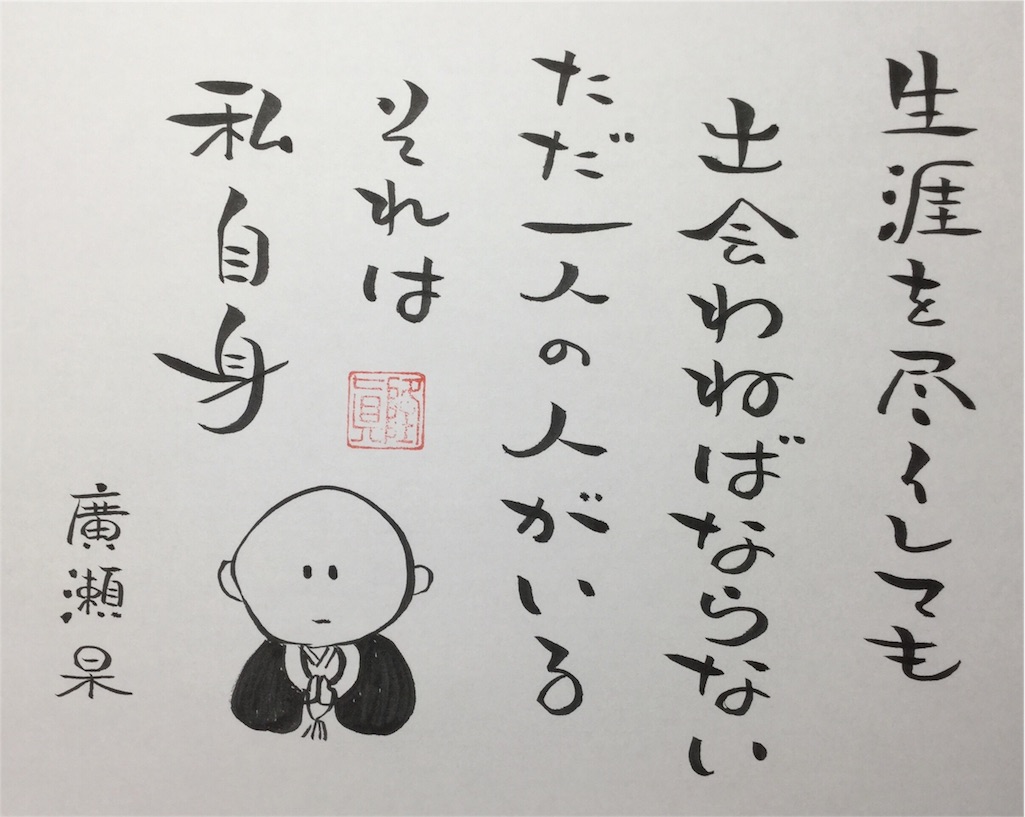 生涯を尽くしても
出会わねばならない
ただ一人の人がいる
それは
私自身
廣瀬杲